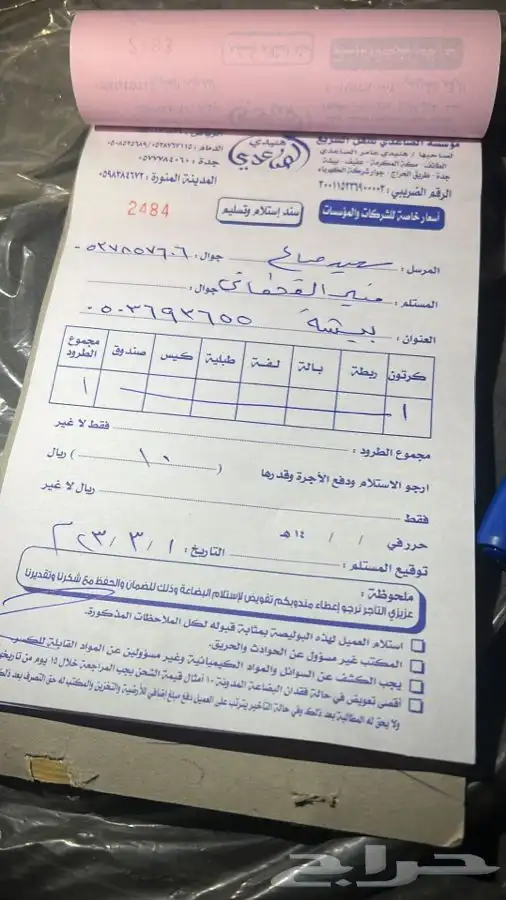 مؤسسة الصاعدي للنقل السريع
لصاحبها / هنيدي عامر الصاعدي
الطائف - مكة المكرمة - عفيف - بيشة
جدة - طريق الحراج - جوار شركة الكهرباء
الرقم الضريبي : ٣٠٠١١٥٢٣٦٩٠٠٠٠٣
هنيدي
الصاعدي
الرياض
الدمام : ٠٥٣٨٧٦٢١١٥ / ٠٥٠٨٥٢٥٦٨٩
جدة : ٠٥٧٧٧٨٤٠٦٠
المدينة المنورة : ٠٥٩٨٢٨٤٦٧٢
أسعار خاصة للشركات والمؤسسات
سند إستلام وتسليم
2484
المرسل : سعيد صالح جوال : ٠٥٣٧٨٥٧٦٠٦
المستلم : منير القحطاني جوال :
العنوان : بيشة ٠٥٠٣٦٩٣٦٥٥
كرتون ربطة بالة لفة طبلية كيس صندوق مجموع الطرود
١ ١
مجموع الطرود : فقط لا غير
ارجو الاستلام ودفع الأجرة وقدرها ( ١٠ ) ريال
فقط ريال لا غير
حرر في / / ١٤ هـ
توقيع المستلم : التاريخ : ١ / ٣ / ٢٣ م
ملحوظة :
عزيزي التاجر نرجو إعطاء مندوبكم تفويض لإستلام البضاعة وذلك للضمان والحفظ مع شكرنا وتقديرنا
استلام العميل لهذه البوليصة بمثابة قبوله لكل الملاحظات المذكورة.
المكتب غير مسؤول عن الحوادث والحريق.
يجب الكشف عن السوائل والمواد الكيميائية وغير مسؤولين عن المواد القابلة للكسر
أقصى تعويض في حالة فقدان البضاعة المدونة ١٠ أمثال قيمة الشحن يجب المراجعة خلال ١٥ يوم من تاريخه
ولا يحق له المطالبة بعد ذلك وفي حالة التأخير يترتب على العميل دفع مبلغ إضافي للأرضية والتخزين والمكتب له حق التصرف بعد ذلك
حراج